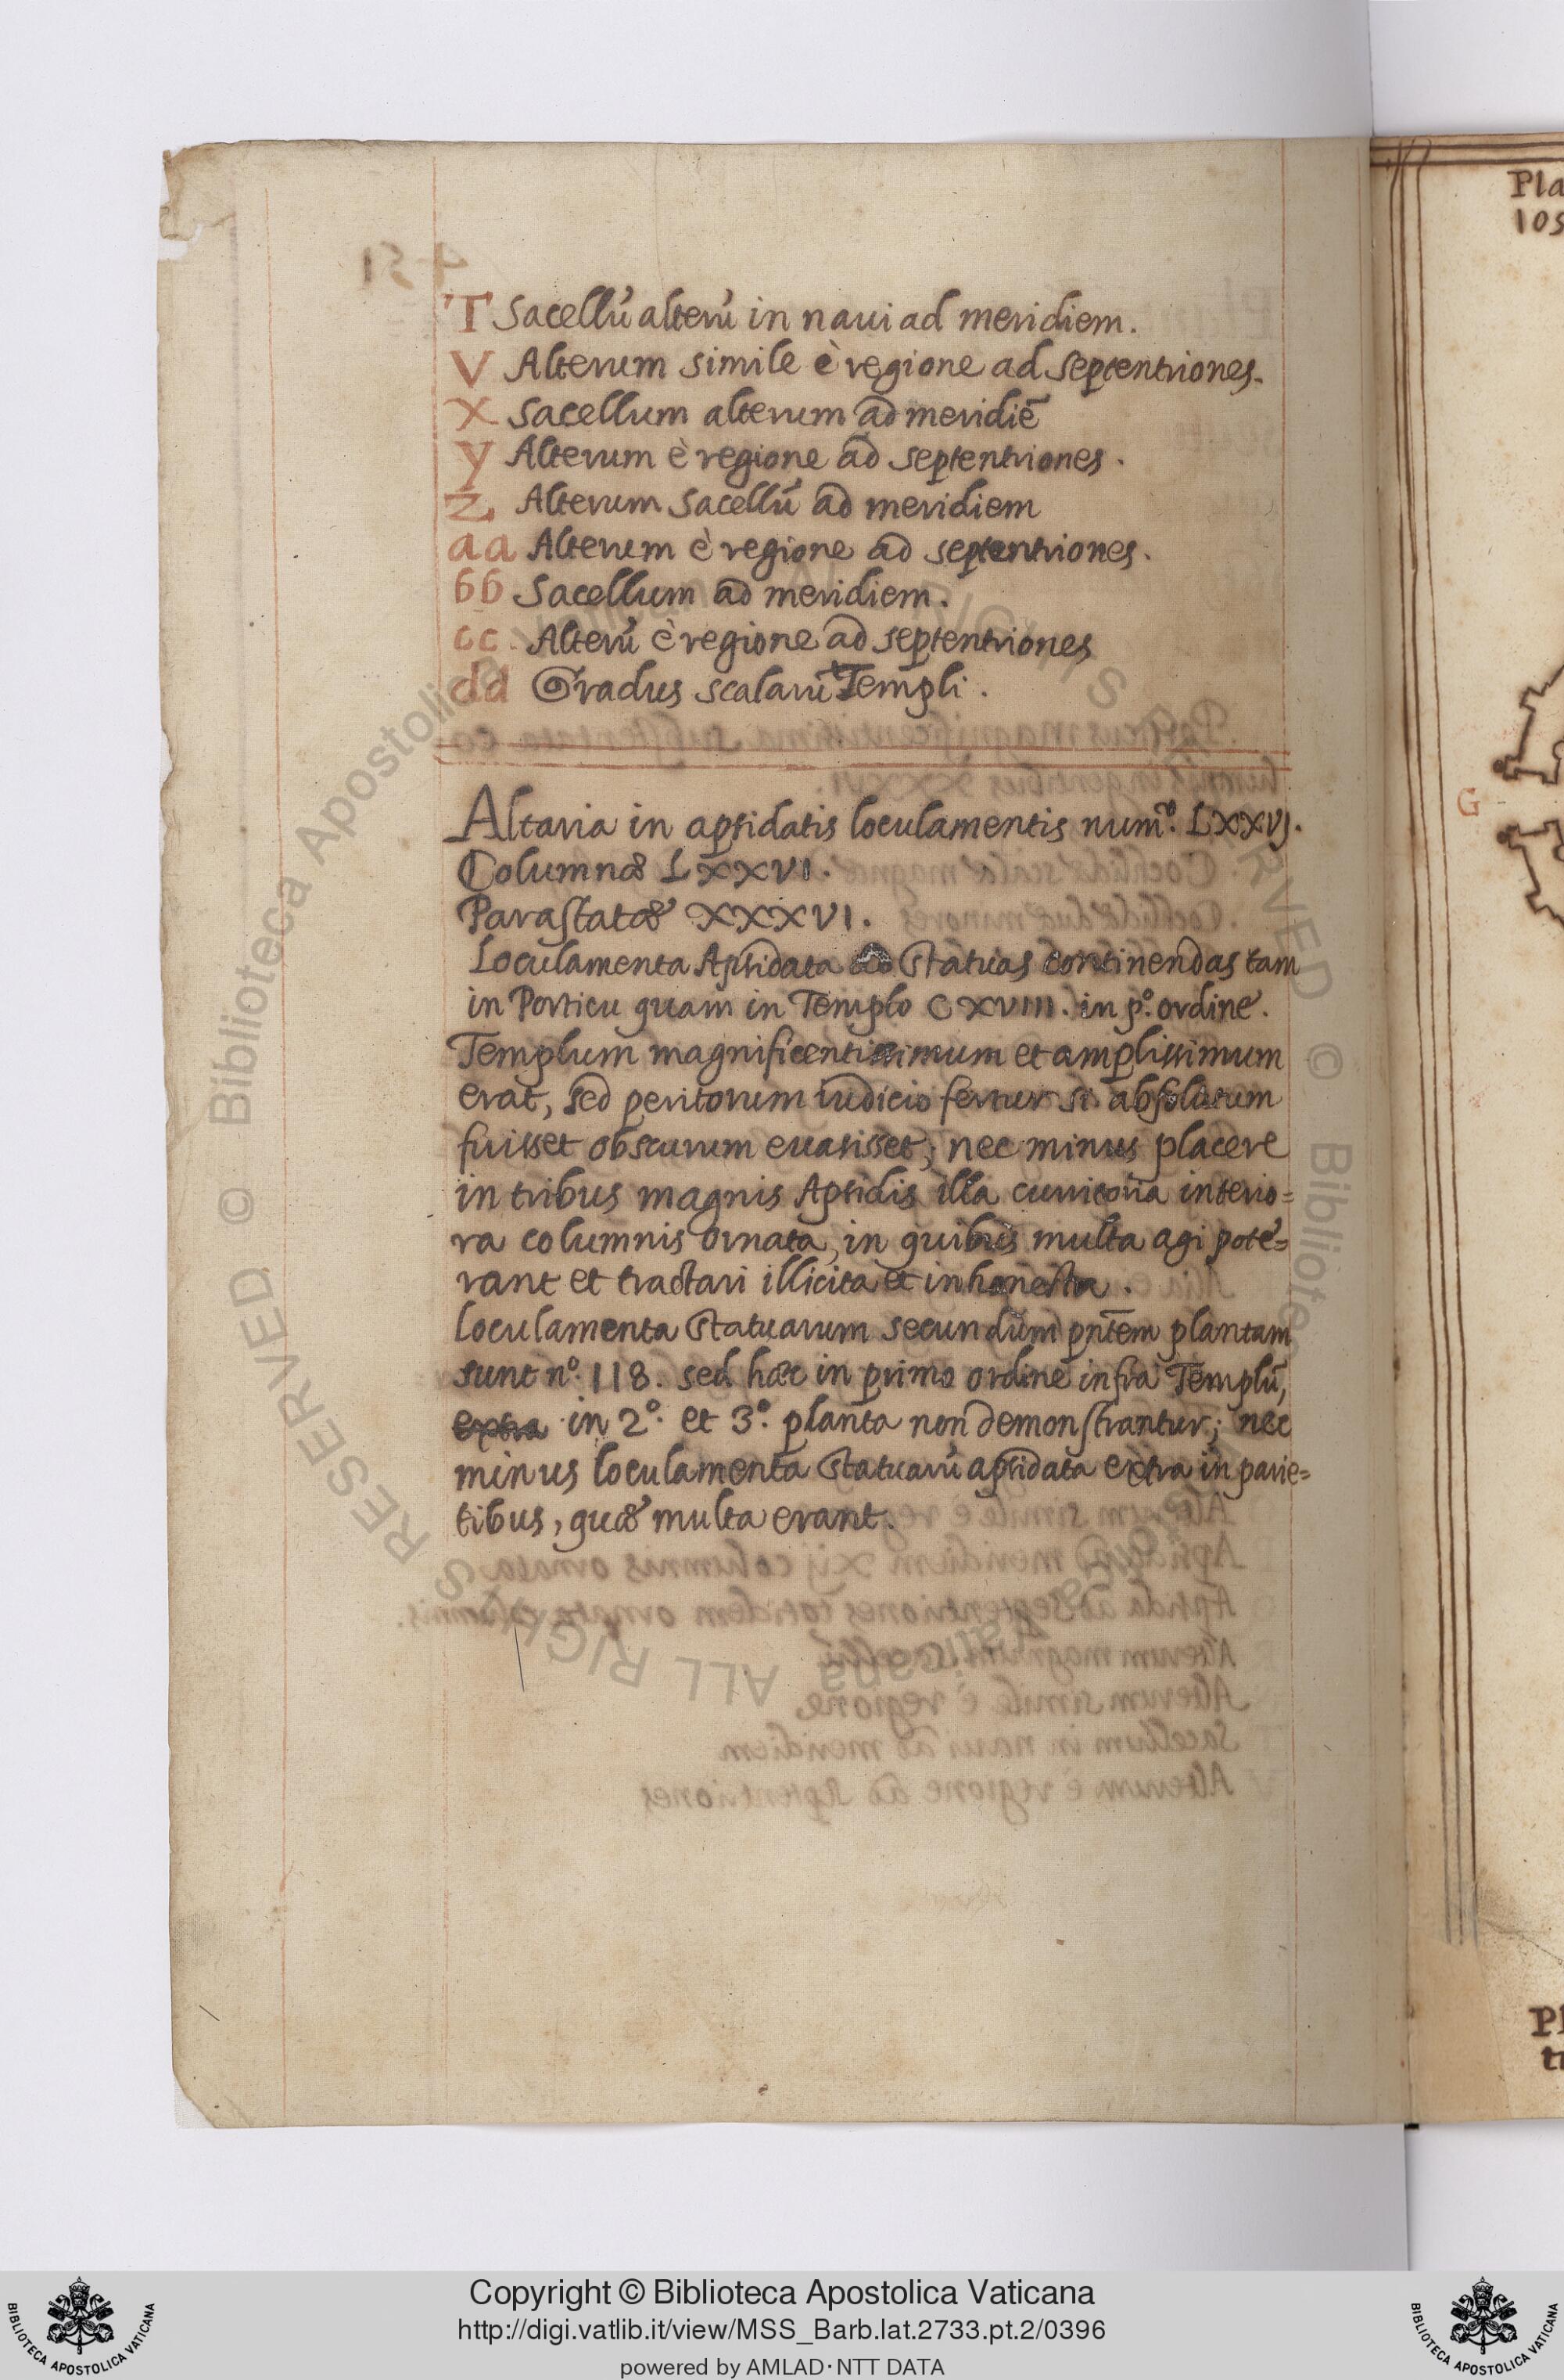 T Sacellū alterū in naui ad meridiem.
V Alterum simile è regione ad Septentriones.
X Sacellum alterum ad meridiē
y Alterum è regione ad septentriones.
Z Alterum Sacellū ad meridiem
aa Alterum è regione ad septentriones.
bb Sacellum ad meridiem.
cc Alterū è regione ad septentriones
dd Gradus scalarū Templi.
Altaria in apsidatis loculamentis num.º LXXVJ.
Columnæ LXXVI.
Parastatæ XXXVI.
Loculamenta Apsidata ad Statuas continendas tam
in Porticu quam in Templo CXVIII. in p.º ordine.
Templum magnificentissimum et amplissimum
erat, sed peritorum iudicio fertur si absolutum
fuisset obscurum euasisset; nec minus placere
in tribus magnis Apsidis illa curritoria interio=
ra columnis ornata, in quibus multa agi pote=
rant et tractari illicita et inhonesta.
Loculamenta Statuarum secundum pñtem plantam
sunt nº. 118. sed hæc in primo ordine infra Templū,
extra in 2º. et 3º. planta non demonstrantur; nec
minus loculamenta Statuarū apsidata extra in parie=
tibus, quæ multa erant.
Pla
105
G
Pl
tr
© Biblioteca Apostolica Vaticana ALL RIGHTS RESERVED © Biblioteca Apostolica Vaticana ALL RIGHTS RESERVED
Copyright © Biblioteca Apostolica Vaticana
http://digi.vatlib.it/view/MSS_Barb.lat.2733.pt.2/0396
powered by AMLAD·NTT DATA
BIBLIOTECA APOSTOLICA VATICANA
BIBLIOTECA APOSTOLICA VATICANA